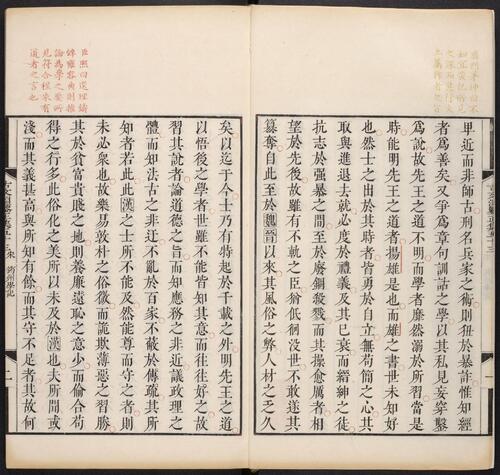 卑近而非師古刑名兵家之術則狃於暴詐惟知經
者為善矣又爭為章句訓詁之學以其私見妄穿鑿
為說故先王之道不明而學者靡然溺於所習當是
時能明先王之道者揚雄是也而雄之書世未知好
也然士之出於其時者皆勇於自立無苟簡之心其
取與進退去就必度於禮義及其已衰而縉紳之徒
抗志於強暴之間至於廢錮殺戮而其操愈厲者相
望於先後故雖有不軌之臣猶低徊沒世不敢遂其
簒奪自此至於魏晉以來其風俗之弊人材之乏久
矣以迄于今士乃有特起於千載之外明先王之道
以悟後之學者世雖不能皆知其意而往往好之故
習其說者論道德之旨而知應務之非近議政理之
體而知法古之非迂不亂於百家不蔽於傳疏其所
知者若此此漢之士所不能及然能尊而守之者則
未必衆也故樂易敦朴之俗微而詭欺薄惡之習勝
其於貧富貴賤之地則養廉遠恥之意少而偷合苟
得之行多此俗化之美所以未及於漢也夫所聞或
淺而其義甚高與所知有餘而其守不足者其故何
雍容典則推
論為學之要所
見符合程朱有
道者之言也
宋 筠州學記
二